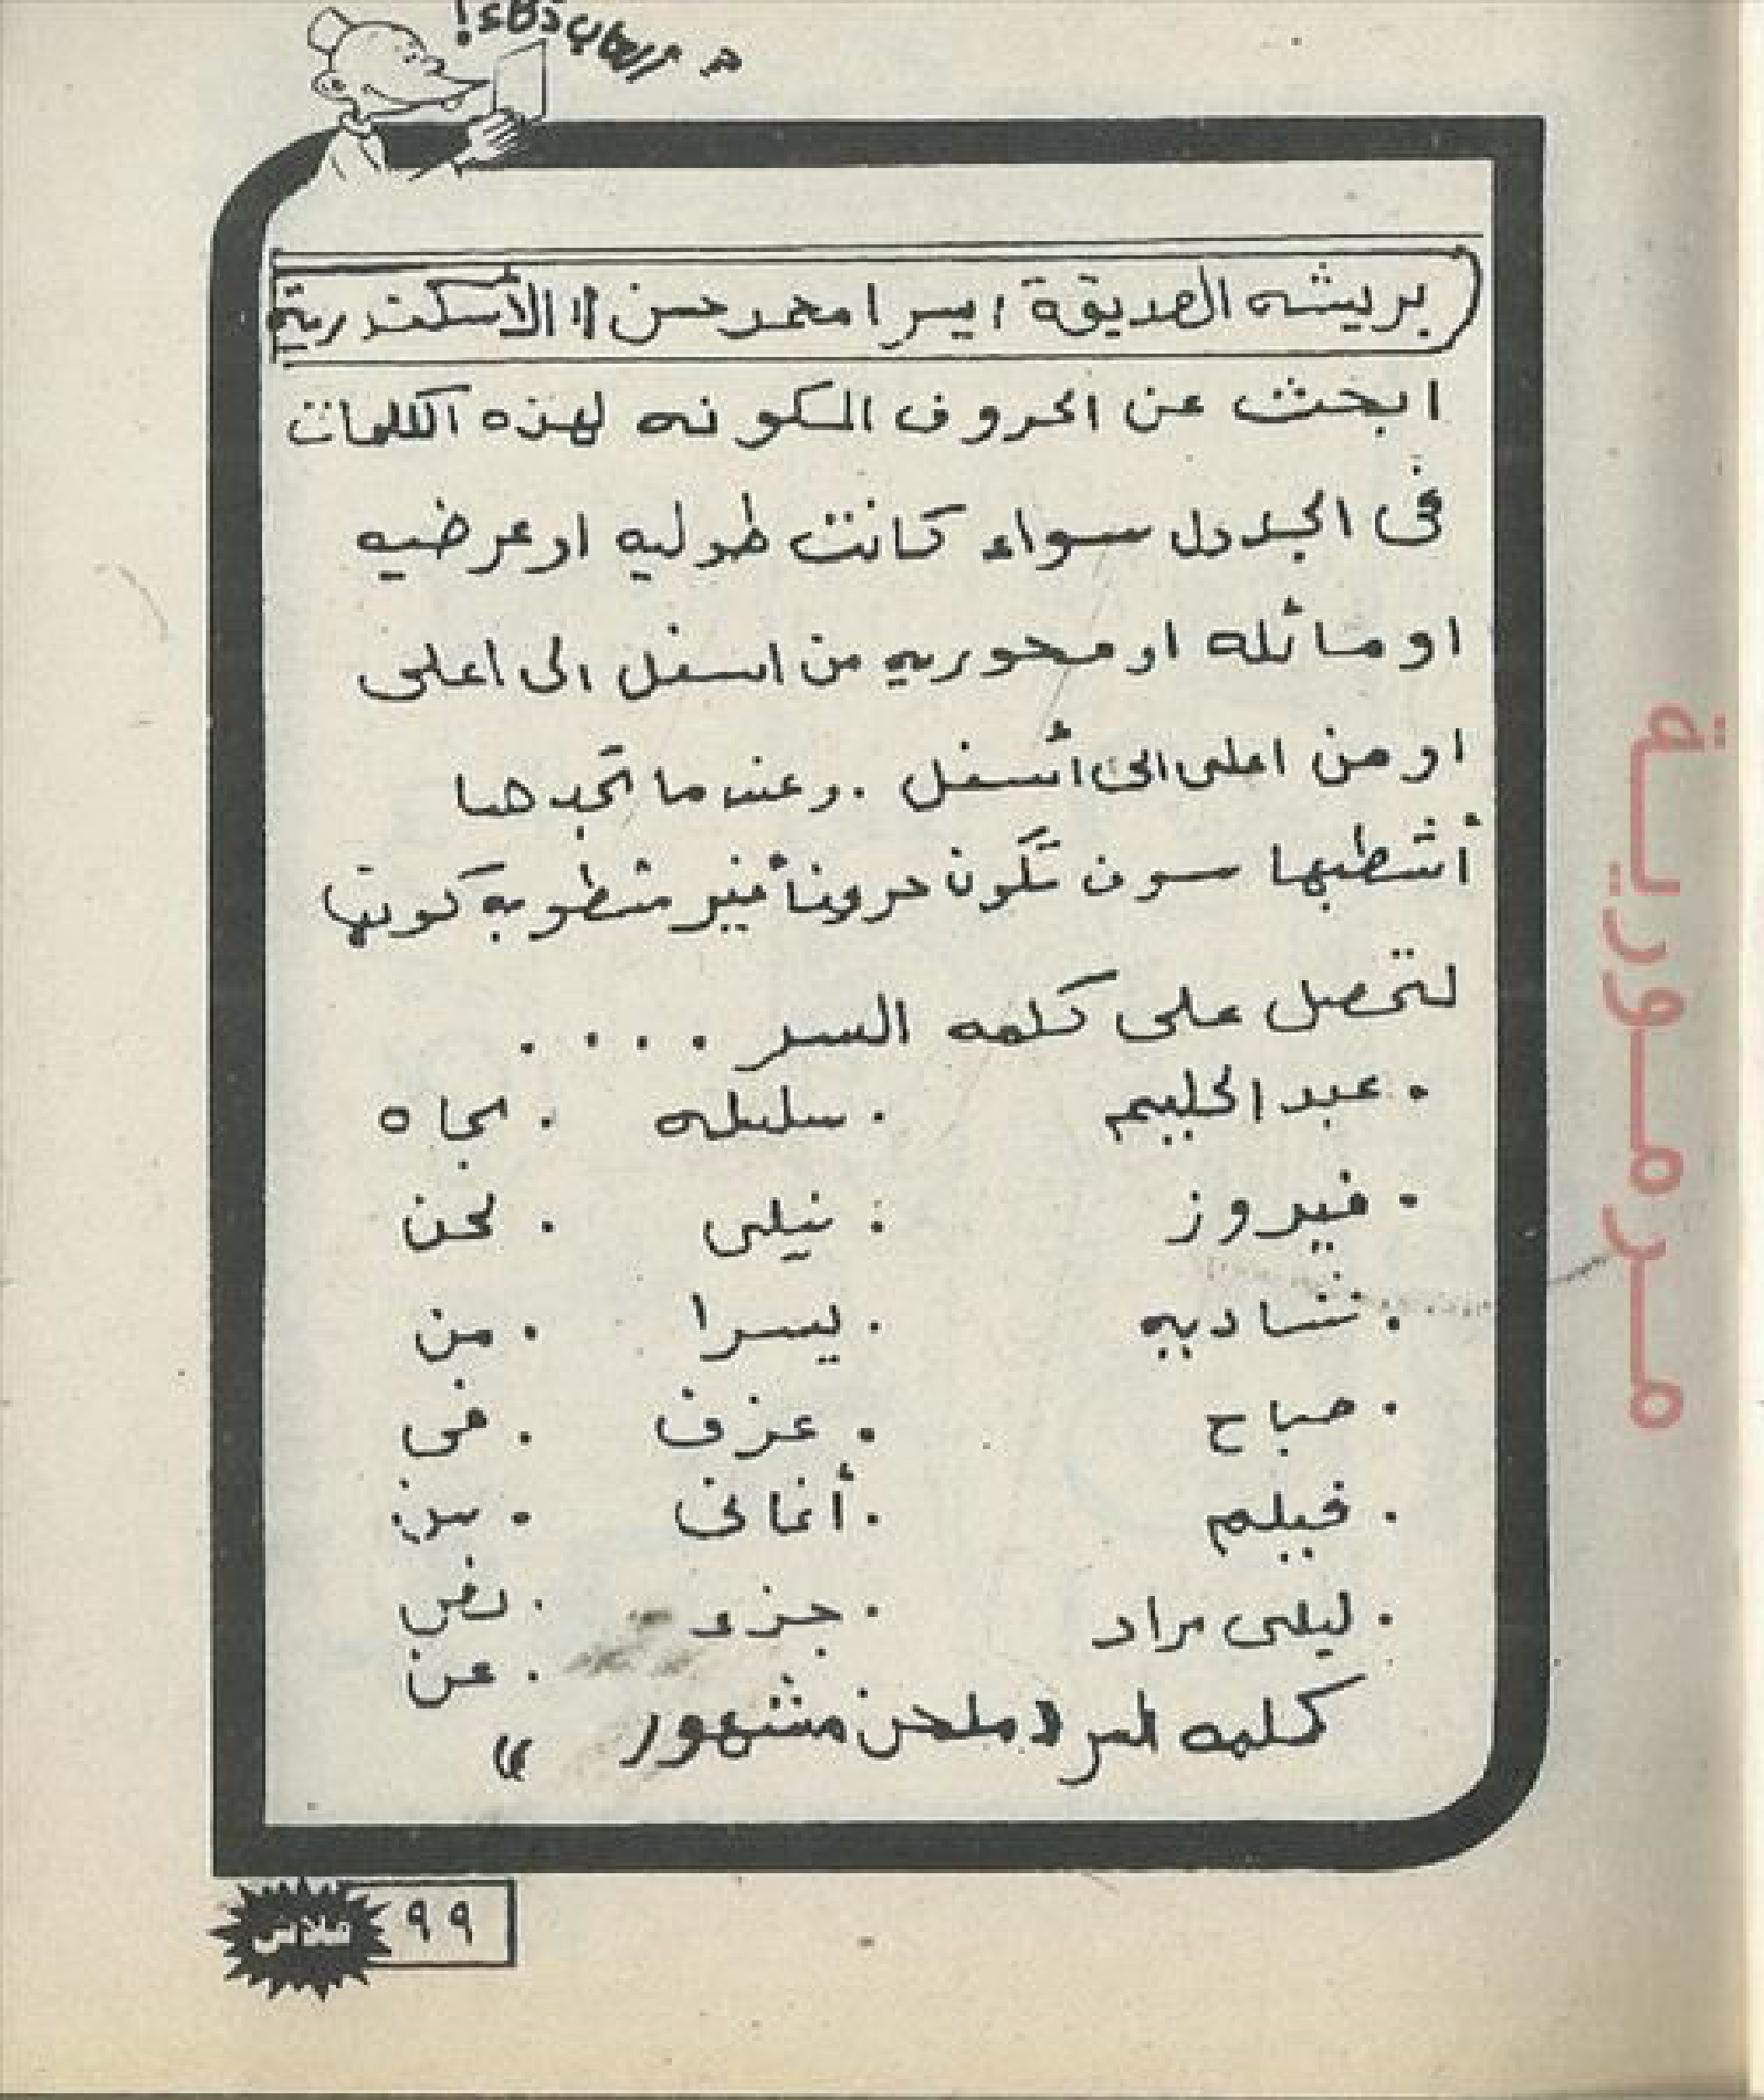 بريشه الصديقة / يسرا محمد حسن // الأسكندرية
ابحث عن الحروف المكونه لهذه الكلمات
فى الجدول سواء كانت طوليه او عرضيه
او مائله او محوريه من اسفل الى اعلى
او من اعلى الى أسفل . وعندما تجدها
أشطبها سوف تكون حروفاً غير مشطوبة كونها
لتحصل على كلمه السر . . . .
. عبد الحليم . سلسله . نجاه
. فيروز : نيلى . لحن
. شاديه . يسرا . من
. صباح . عزف . فى
. فيلم . أغانى . سن
. ليلى مراد . جزء
. عن
كلمه السر « ملحن مشهور »
٩٩
فلاش
مرمورية